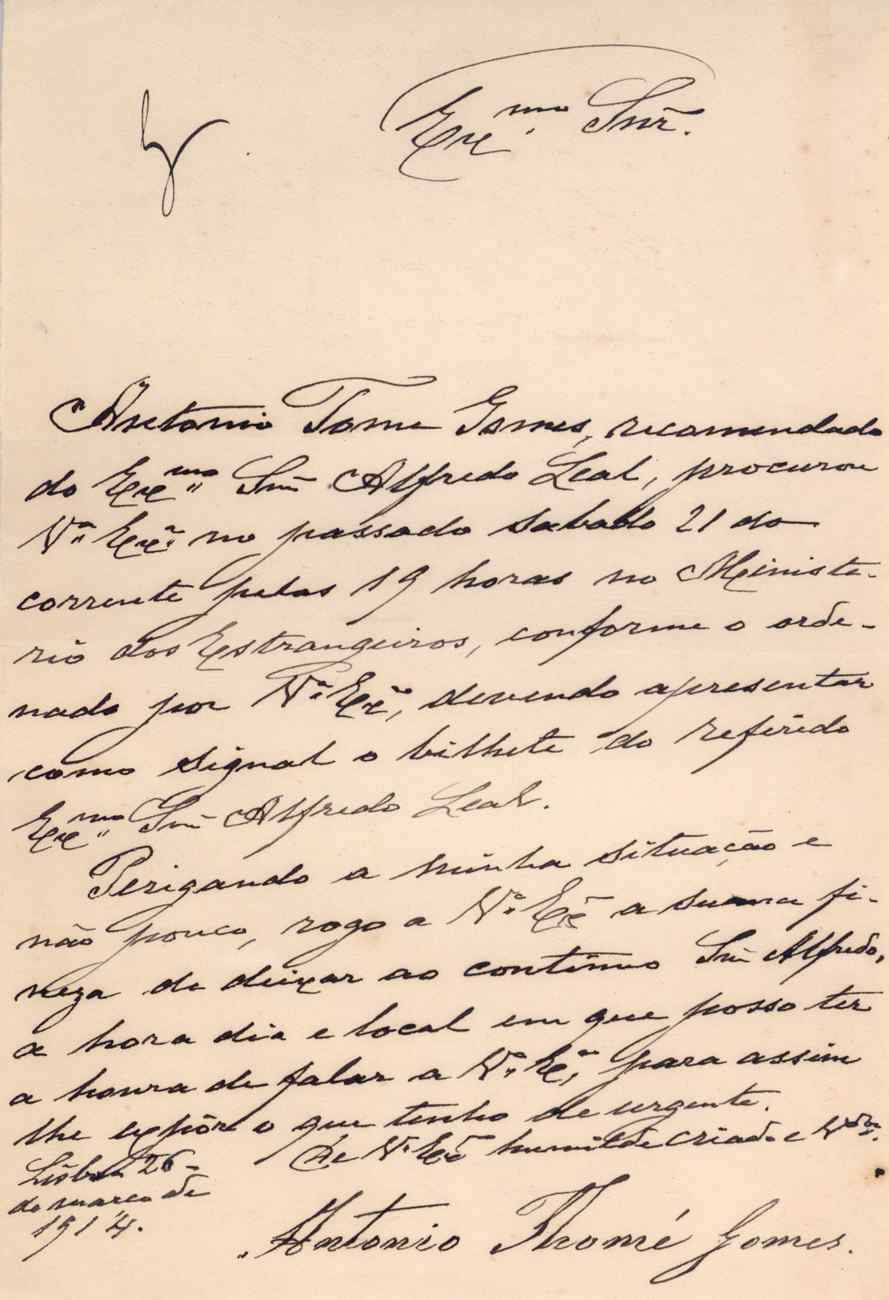 Ex.mo Snr.
Antonio Tome Gomes, recomendado
do Ex.mo Snr Alfredo Leal, procurou
V.a Ex.a no passado sabado 21 do
corrente pelas 19 horas no Ministe-
rio dos Estrangeiros, conforme o orde-
nado por V.a Ex.a, devendo apresentar
como signal o bilhete do referido
Ex.mo Snr Alfredo Leal.
Perigando a minha situação e
não pouco, rogo a V.a Ex.a a suma fi-
neza de deixar ao continuo Snr Alfredo,
a hora dia e local em que posso ter
a honra de falar a V.a Ex.a, para assim
lhe expôr o que tenho de urgente.
De V.a Ex.a humilde criado e V.dor.
Lisboa 26-
de março de
1914.
Antonio Thomé Gomes.